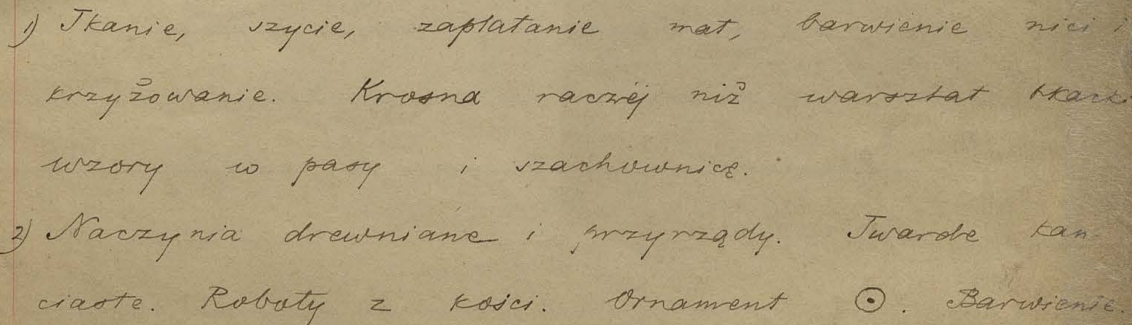 1) Tkanie, szycie, zaplatanie mat, barwienie nici i
krzyżowanie. Krosna raczej niż warsztat tkacki
wzory w pasy i szachownicę.
2) Naczynia drewniane i przyrządy. Twarde kan-
ciaste. Roboty z kości. Ornament ⊙. Barwienie.